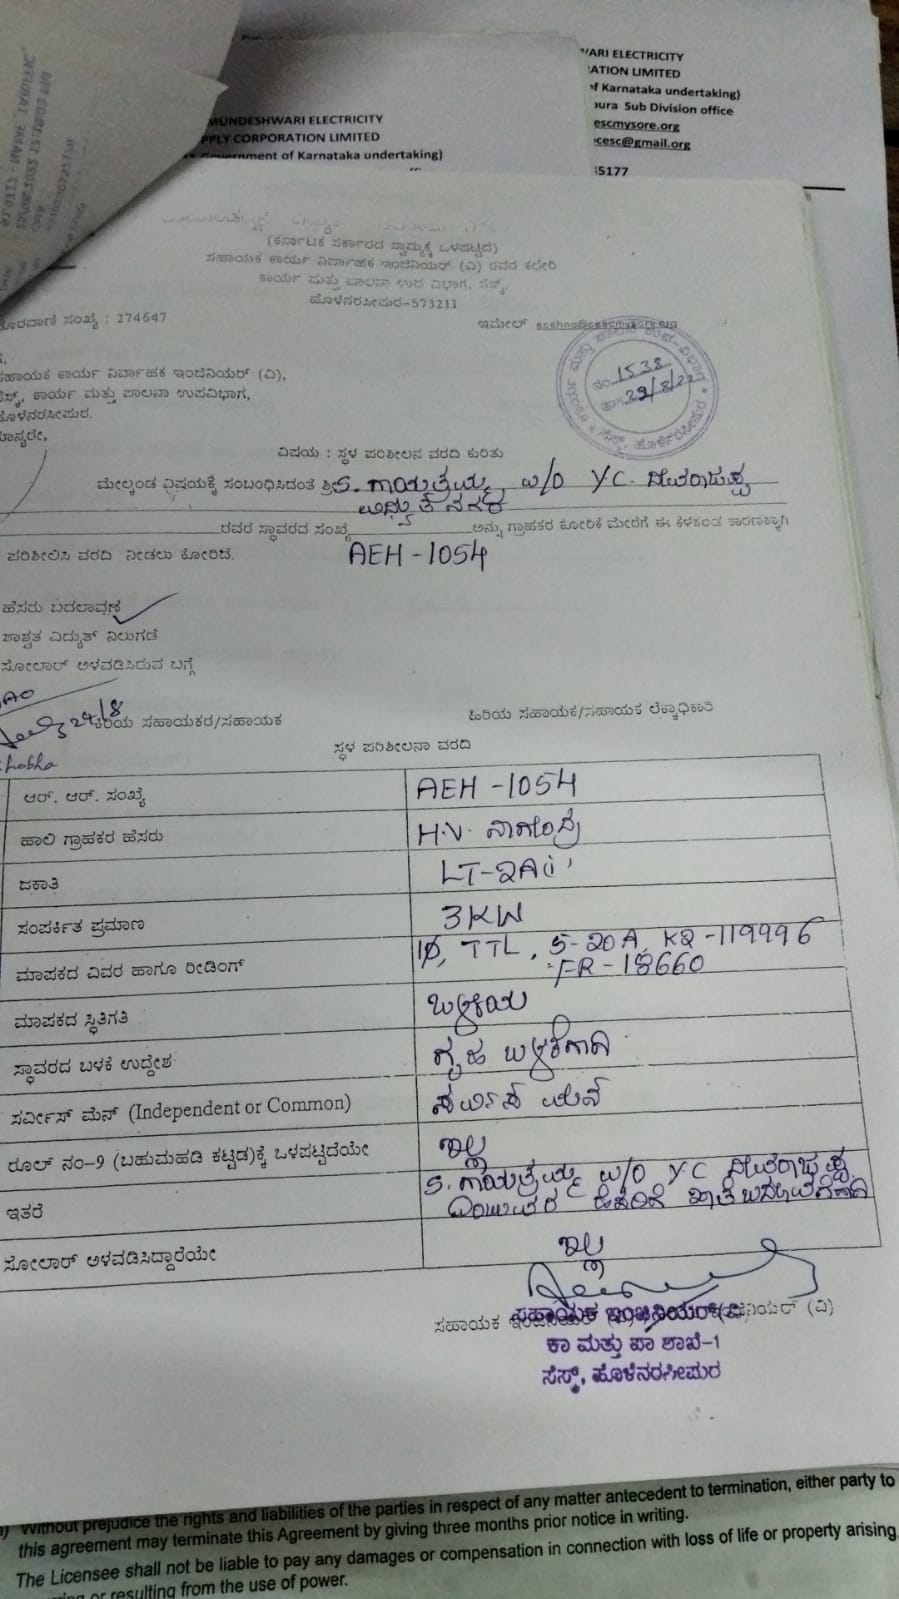 MUNDESHWARI ELECTRICITY
PPLY CORPORATION LIMITED
Government of Karnataka undertaking)
WARI ELECTRICITY
RATION LIMITED
of Karnataka undertaking)
pura Sub Division office
escmysore.org
cesc@gmail.org
35177
(ಕರ್ನಾಟಕ ಸರ್ಕಾರದ ಸ್ವಾಮ್ಯಕ್ಕೆ ಒಳಪಟ್ಟಿದೆ)
ಸಹಾಯಕ ಕಾರ್ಯ ನಿರ್ವಾಹಕ ಇಂಜಿನಿಯರ್ (ವಿ) ರವರ ಕಛೇರಿ
ಕಾರ್ಯ ಮತ್ತು ಪಾಲನಾ ಉಪ ವಿಭಾಗ, ಸೆಸ್ಕ್,
ಹೊಳೆನರಸೀಪುರ-573211
ದೂರವಾಣಿ ಸಂಖ್ಯೆ : 274647 ಇಮೇಲ್
ನಂ. 1538
ಸಹಾಯಕ ಕಾರ್ಯ ನಿರ್ವಾಹಕ ಇಂಜಿನಿಯರ್ (ವಿ),
ಸೆಸ್ಕ್, ಕಾರ್ಯ ಮತ್ತು ಪಾಲನಾ ಉಪವಿಭಾಗ,
ಹೊಳೆನರಸೀಪುರ.
ಮಾನ್ಯರೇ,
ವಿಷಯ : ಸ್ಥಳ ಪರಿಶೀಲನ ವರದಿ ಕುರಿತು
ಮೇಲ್ಕಂಡ ವಿಷಯಕ್ಕೆ ಸಂಬಂಧಿಸಿದಂತೆ ಶ್ರೀ S. ಗಾಯತ್ರಮ್ಮ w/o Y.C.
ರವರ ಸ್ಥಾವರದ ಸಂಖ್ಯೆ ಅನ್ನು ಗ್ರಾಹಕರ ಕೋರಿಕೆ ಮೇರೆಗೆ ಈ ಕೆಳಕಂಡ ಕಾರಣಕ್ಕಾಗಿ
ಪರಿಶೀಲಿಸಿ ವರದಿ ನೀಡಲು ಕೋರಿದೆ. AEH-1054
ಹೆಸರು ಬದಲಾವಣೆ
ಶಾಶ್ವತ ವಿದ್ಯುತ್ ನಿಲುಗಡೆ
ಸೋಲಾರ್ ಅಳವಡಿಸಿರುವ ಬಗ್ಗೆ
ಹಿರಿಯ ಸಹಾಯಕರ/ಸಹಾಯಕ ಹಿರಿಯ ಸಹಾಯಕ/ಸಹಾಯಕ ಲೆಕ್ಕಾಧಿಕಾರಿ
ಸ್ಥಳ ಪರಿಶೀಲನಾ ವರದಿ
ಆರ್. ಆರ್. ಸಂಖ್ಯೆ AEH-1054
ಹಾಲಿ ಗ್ರಾಹಕರ ಹೆಸರು H.V. ನಾಗೇಂದ್ರ
ಜಕಾತಿ LT-2Ai
ಸಂಪರ್ಕಿತ ಪ್ರಮಾಣ 3KW
ಮಾಪಕದ ವಿವರ ಹಾಗೂ ರೀಡಿಂಗ್ 1Ø, TTL, 5-20A, K2-119996
FR-18660
ಮಾಪಕದ ಸ್ಥಿತಿಗತಿ ಒಳ್ಳೆಯ
ಸ್ಥಾವರದ ಬಳಕೆ ಉದ್ದೇಶ ಗೃಹ ಬಳಕೆಗಾಗಿ
ಸರ್ವೀಸ್ ಮೆನ್ (Independent or Common)
ರೂಲ್ ನಂ-9 (ಬಹುಮಹಡಿ ಕಟ್ಟಡ)ಕ್ಕೆ ಒಳಪಟ್ಟಿದೆಯೇ ಇಲ್ಲ
ಇತರೆ S. ಗಾಯತ್ರಮ್ಮ w/o Y C
ಸೋಲಾರ್ ಅಳವಡಿಸಿದ್ದಾರೆಯೇ ಇಲ್ಲ
ಸಹಾಯಕ ಇಂಜಿನಿಯರ್ (ವಿ)
ಕಾ ಮತ್ತು ಪಾ ಶಾಖೆ-1
ಸೆಸ್ಕ್, ಹೊಳೆನರಸೀಪುರ
Without prejudice the rights and liabilities of the parties in respect of any matter antecedent to termination, either party to
this agreement may terminate this Agreement by giving three months prior notice in writing.
The Licensee shall not be liable to pay any damages or compensation in connection with loss of life or property arising
or resulting from the use of power.